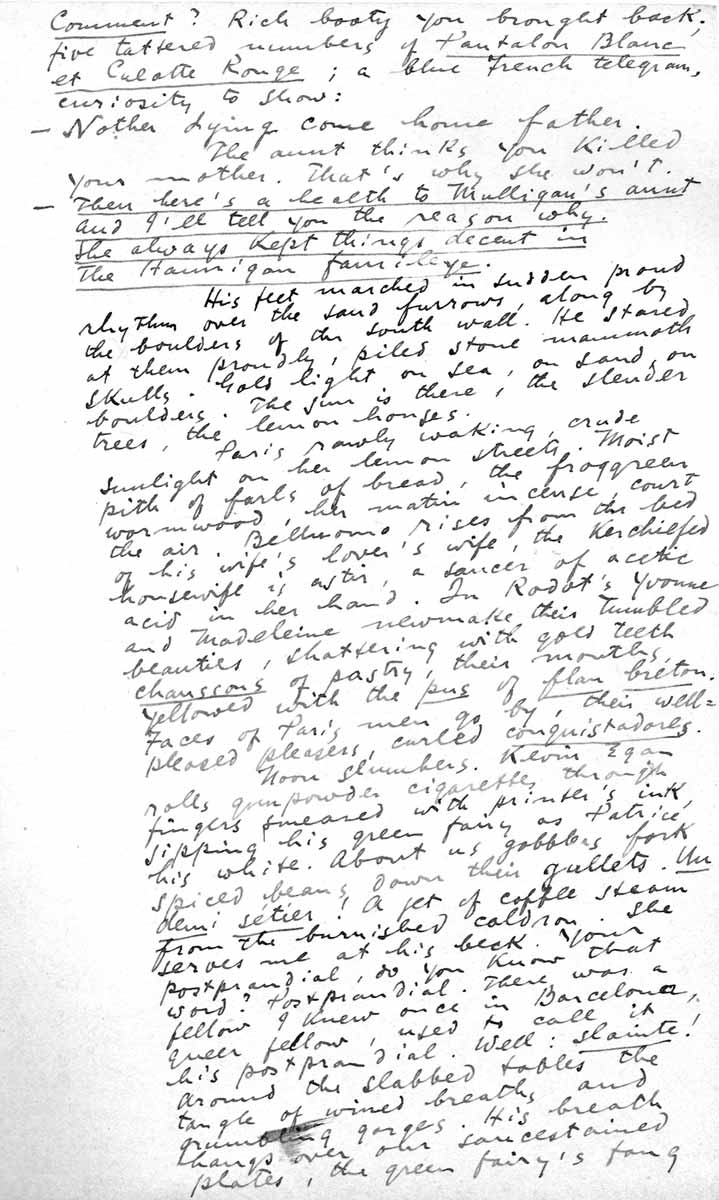 Comment? Rich booty you brought back;
five tattered numbers of Pantalon Blanc
et Culotte Rouge; a blue French telegram,
curiosity to show:
— Nother dying come home father.
The aunt thinks you killed
your mother. That's why she won't.
— Then here's a health to Mulligan's aunt
and I'll tell you the reason why.
She always kept things decent in
The Hannigan famileye.
His feet marched in sudden proud
rhythm over the sand furrows, along by
the boulders of the south wall. He stared
at them proudly, piled stone mammoth
skulls. Gold light on sea, on sand, on
boulders. The sun is there, the slender
trees, the lemon houses.
Paris rawly waking, crude
sunlight on her lemon streets. Moist
pith of farls of bread, the froggreen
wormwood, her matin incense, court
the air. Belluomo rises from the bed
of his wife's lover's wife, the kerchiefed
housewife is astir, a saucer of acetic
acid in her hand. In Rodot's Yvonne
and Madeleine newmake their tumbled
beauties, shattering with gold teeth
chaussons of pastry, their mouths
yellowed with the pus of flan bréton.
Faces of Paris men go by, their well=
pleased pleasers, curled conquistadores.
Noon slumbers. Kevin Egan
rolls gunpowder cigarettes through
fingers smeared with printer's ink,
sipping his green fairy as Patrice
his white. About us gobblers fork
spiced beans down their gullets. Un
demi setier! A jet of coffee steam
from the burnished caldron. She
serves me at his beck. Your
postprandial, do you know that
word? Postprandial. There was a
fellow I knew once in Barcelona,
queer fellow, used to call it
his postprandial. Well: slainte!
Around the slabbed tables the
tangle of wined breaths and
grumbling gorges. His breath
hangs over our saucestained
plates, the green fairy's fang